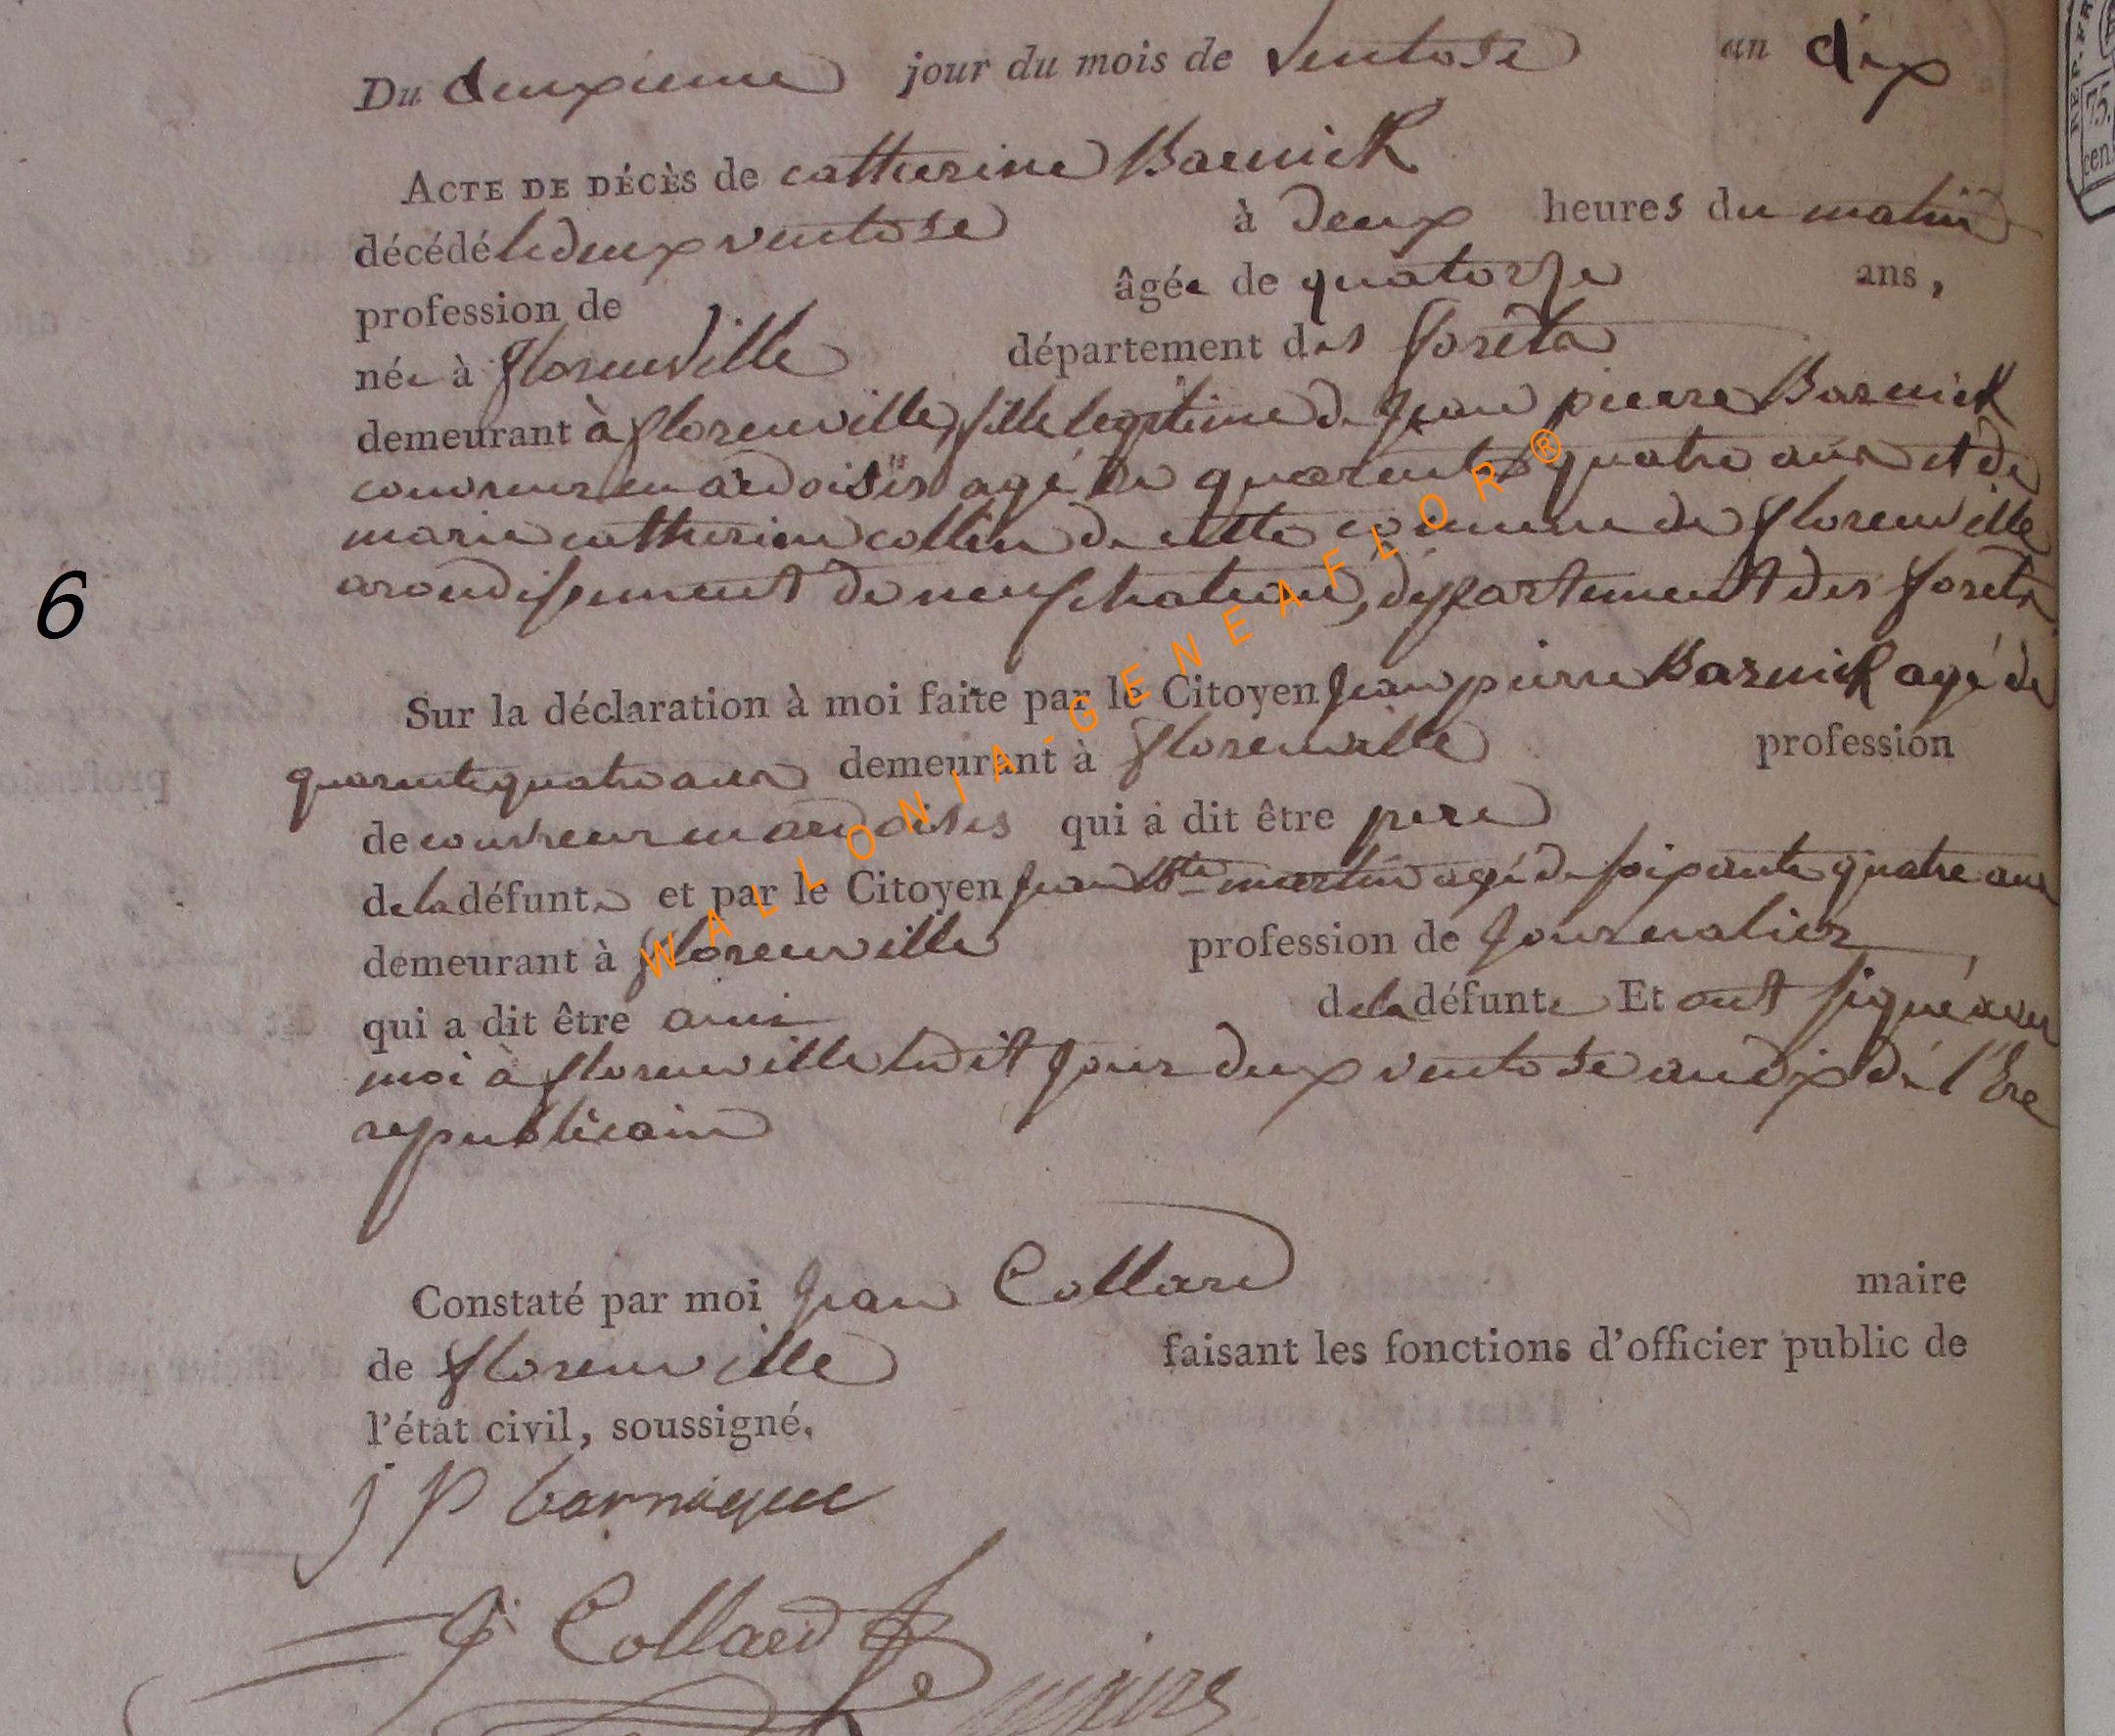 Du deuxieme jour du mois de Ventose an dix
ACTE DE DÉCÈS de catherine Barnick
décédé le deux ventose à deux heures du matin
profession de âgée de quatorze ans,
née à florenville département des forêts
demeurant à florenville, fille legitime de jean pierre Barnick
couvreur en ardoises agé de quarente quatre ans et de
marie catherine collin de cette commune de florenville
arondissement de neufchateau, département des forets
6
Sur la déclaration à moi faite par le Citoyen jean pierre Barnick agé de
quarente quatre ans demeurant à florenville profession
de couvreur en ardoises qui a dit être pere
de la défunte et par le Citoyen jean Bte martin agé de soixante quatre ans
demeurant à florenville profession de journalier
qui a dit être ami de la défunte Et ont signé avec
moi à florenville ledit jour deux ventose an dix de l'Ere
republicain
Constaté par moi jean Collard maire
de florenville faisant les fonctions d'officier public de
l'état civil, soussigné.
j P barnique
J. Collard
maire
WALLONIA-GENEAFLOR®
REP. FR
75.
cen.